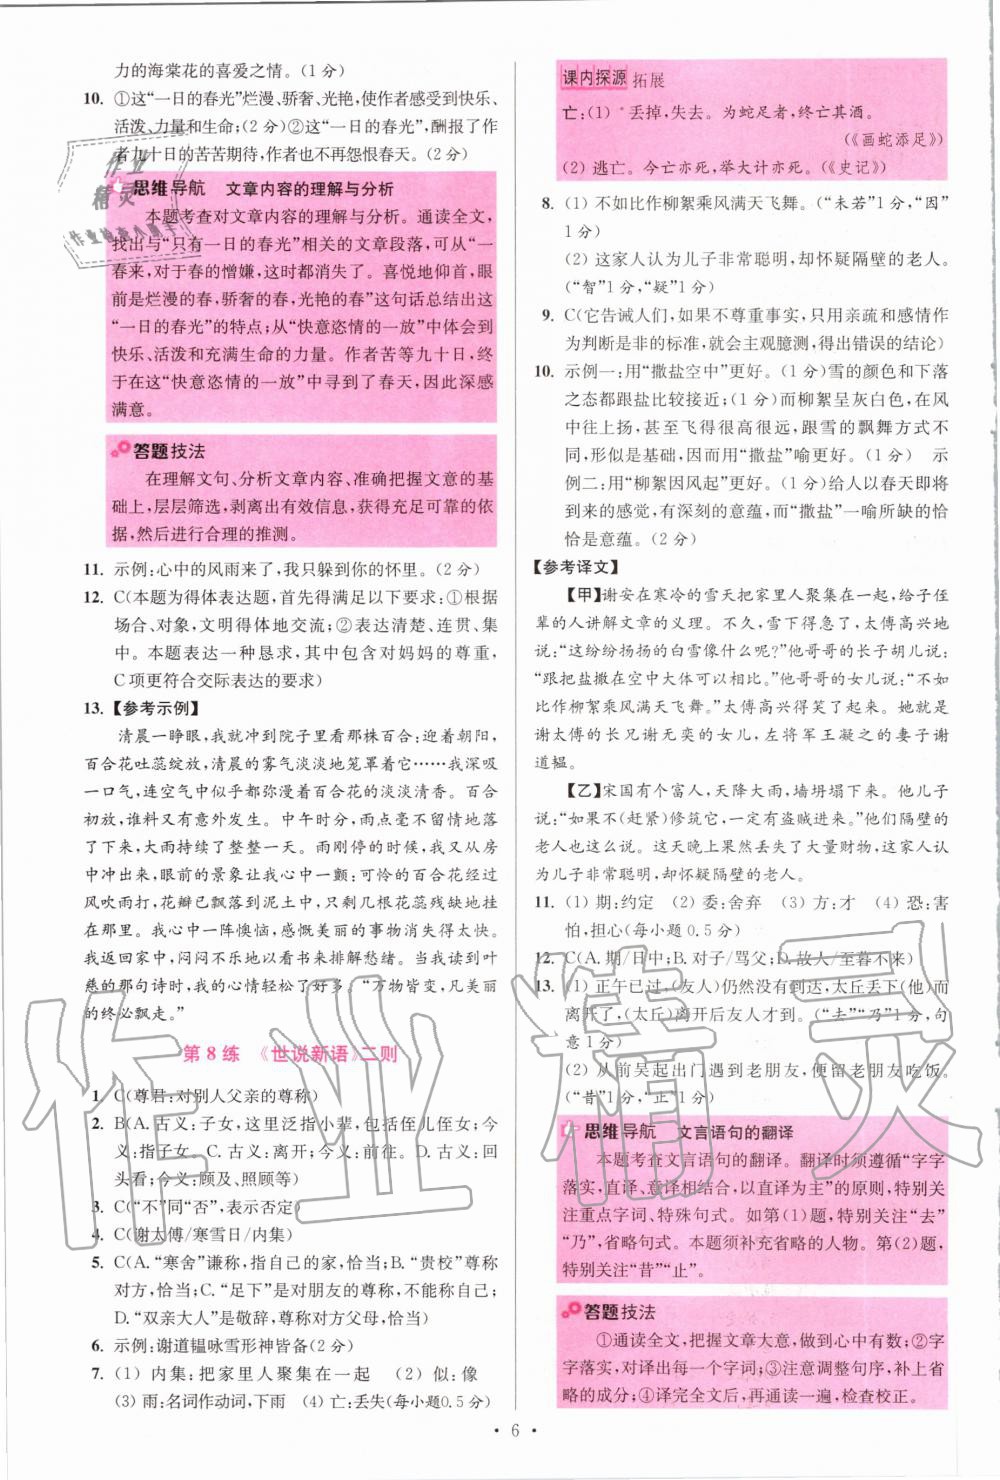 力的海棠花的喜爱之情。(1分)
10. ①这“一日的春光”烂漫、骄奢、光艳,使作者感受到快乐、
活泼、力量和生命;(2分)②这“一日的春光”,酬报了作
者九十日的苦苦期待,作者不再怨恨春天。(2分)
思维导航 文章内容的理解与分析
本题考查对文章内容的理解与分析。通读全文,
找出与“只有一日的春光”相关的文章段落,可从“一
春来,对于春的憎嫌,这时都消失了。喜悦地仰首,眼
前是烂漫的春,骄奢的春,光艳的春”这句话总结出这
“一日的春光”的特点;从“快意恣情的一放”中体会到
快乐、活泼和充满生命的力量。作者苦等九十日,终
于在这“快意恣情的一放”中寻到了春天,因此深感
满意。
答题技法
在理解文句、分析文章内容、准确把握文意的基
础上,层层筛选,剥离出有效信息,获得充足可靠的依
据,然后进行合理的推测。
11. 示例:心中的风雨来了,我只躲到你的怀里。(2分)
12. C(本题为得体表达题,首先得满足以下要求:①根据
场合、对象,文明得体地交流;②表达清楚、连贯、集
中。本题表达一种恳求,其中包含对妈妈的尊重,
C项更符合交际表达的要求)
13. 【参考示例】
清晨一睁眼,我就冲到院子里看那株百合:迎着朝阳,
百合花吐蕊绽放,清晨的雾气淡淡地笼罩着它……我深吸
一口气,连空气中似乎都弥漫着百合花的淡淡清香。百合
初放,谁料又有意外发生。中午时分,雨点毫不留情地落
了下来,大雨持续了整整一天。雨刚停的时候,我又从房
中冲了出来,眼前的景象让我心中一颤:可怜的百合花经过
风吹雨打,花瓣已飘落到泥土中,只剩几根花蕊残败地挂
在那里。我心中一阵懊恼,感叹美丽的事物消失得太快。
我返回家中,闷闷不乐地倚靠在窗前排解愁绪。当我读到叶
慈的那句诗时,我的心情轻松了好多。“万物皆变,凡美丽
的终必飘走。”
第8练 《世说新语》二则
1. C(尊君:对别人父亲的尊称)
2. B(A. 古义:子女,这里泛指小辈,包括侄儿侄女;今
义:指子女。C. 古义:离开;今义:前往。D. 古义:回
头看;今义:顾及、照顾等)
3. C(“不”同“否”,表示否定)
4. C(谢太傅/寒雪日/内集)
5. C(A. “寒舍”是谦称,指自己的家,恰当;B. “贵校”尊称
对方,恰当;C. “足下”是对朋友的尊称,不能称自己;
D. “双亲大人”是敬辞,尊称对方父母,恰当)
6. 示例:谢道韫咏雪形神皆备(2分)
7. (1) 内集:把家里人聚集在一起 (2) 似:像
(3) 雨:名词作动词,下雨 (4) 亡:丢失(每小题0.5分)
课内探源 拓展
亡:(1) 丢掉,失去。为蛇足者,终亡其酒。
(《画蛇添足》)
(2) 逃亡。今亡亦死,举大计亦死。(《史记》)
8. (1) 不如比作柳絮乘风满天飞舞。(“未若”1分,“因”
1分)
(2) 这家人认为儿子非常聪明,却怀疑隔壁的老人。
(“智”1分,“疑”1分)
9. C(它告诫人们,如果不尊重事实,只用亲疏和感情作
为判断是非的标准,就会主观臆测,得出错误的结论)
10. 示例一:用“撒盐空中”更好。(1分)雪的颜色和下落
之态都跟盐比较接近;(1分)而柳絮呈灰白色,在风
中往上扬,甚至飞得很高很远,跟雪的飘舞方式不
同,形似是基础,因而用“撒盐”喻更好。(1分) 示
例二:用“柳絮因风起”更好。(1分)给人以春天即将
到来的感觉,有深刻的意蕴,而“撒盐”一喻所缺的恰
恰是意蕴。(2分)
【参考译文】
【甲】谢安在寒冷的雪天把家里人聚集在一起,给子侄
辈的人讲解文章的义理。不久,雪下得急了,太傅高兴地
说:“这纷纷扬扬的白雪像什么呢?”他哥哥的长子胡儿说:
“跟把盐撒在空中大体可以相比。”他哥哥的女儿说:“不如
比作柳絮乘风满天飞舞。”太傅高兴得笑了起来。她就是
谢太傅的长兄谢无奕的女儿,左将军王凝之的妻子谢
道韫。
【乙】宋国有个富人,天降大雨,墙坍塌了。他儿子
说:“如果不(赶紧)修筑它,一定有盗贼进来。”他们隔壁的
老人也这么说。这天晚上果然丢失了大量财物,这家人认
为儿子非常聪明,却怀疑隔壁的老人。
11. (1) 期:约定 (2) 委:舍弃 (3) 方:才 (4) 恐:害
怕,担心(每小题0.5分)
12. C(A. 期/日中;B. 对子/骂父;D. 故人/至暮不来)
13. (1) 正午已过,(友人)仍然没有到达,太丘丢下(他)而
离开了,(太丘)离开后友人才到。(“去”“乃”1分,句
意1分)
(2) 从前吴起出门遇到老朋友,便留老朋友吃饭。
(“昔”1分,“止”1分)
思维导航 文言语句的翻译
本题考查文言语句的翻译。翻译时须遵循“字字
落实,直译、意译相结合,以直译为主”的原则,特别关
注重点字词、特殊句式。如第(1)题,特别关注“去”
“乃”,省略句式。本题须补充省略的人物。第(2)题,
特别关注“昔”“止”。
答题技法
①通读全文,把握文章大意,做到心中有数;②字
字落实,对译出每一个字词;③注意调整句序,补上省
略的成分;④译完全文后,再通读一遍,检查校正。
• 6 •
作业
精灵
作业精灵